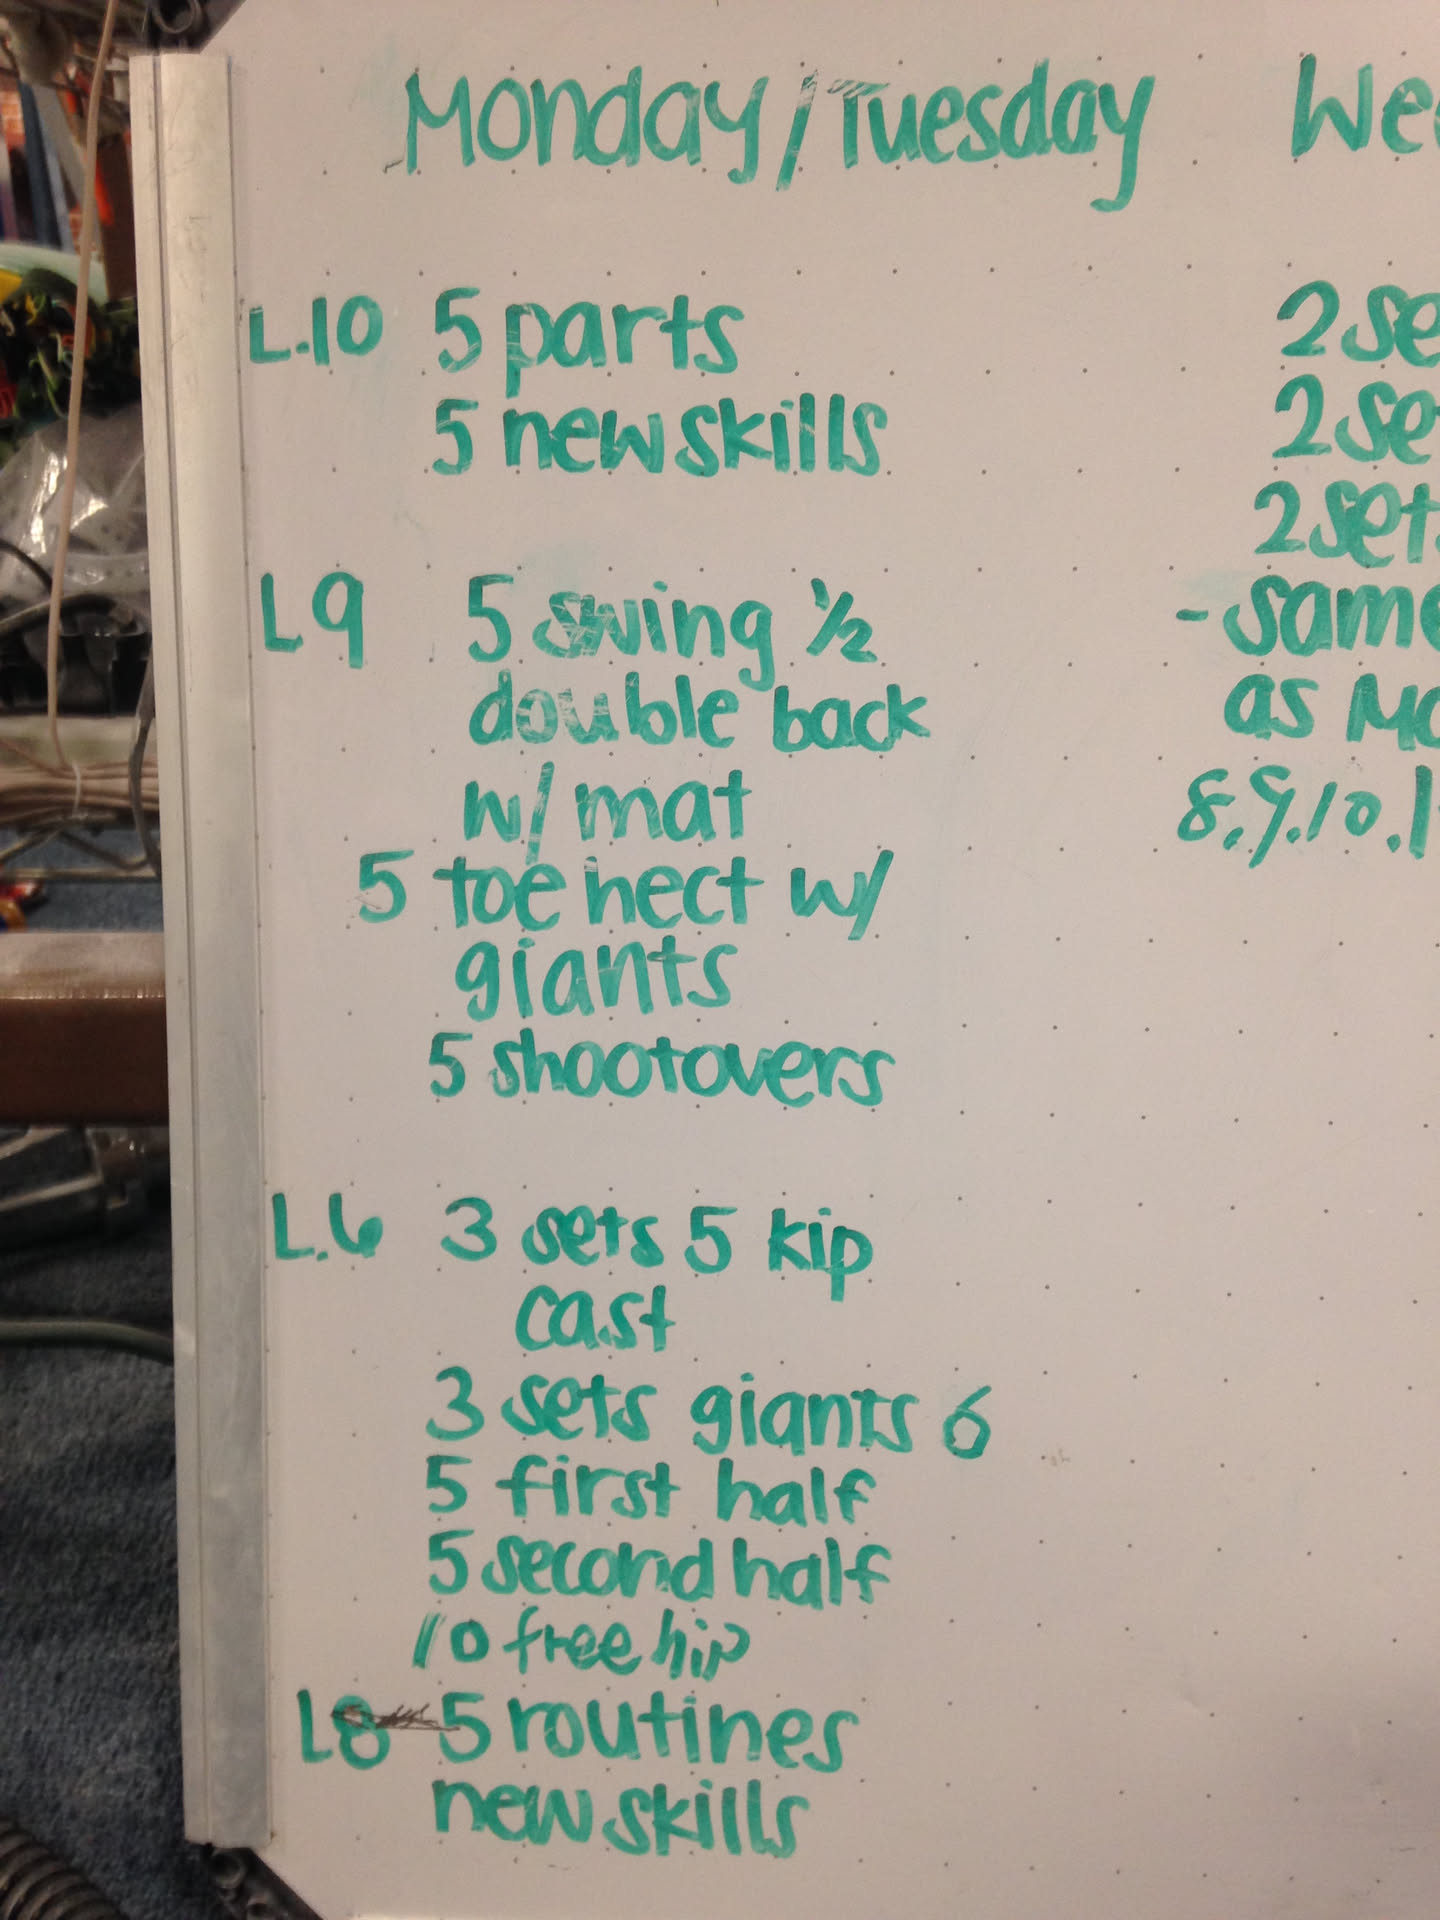 Monday/Tuesday
L.10 5 parts
5 new skills
L9 5 swing 1/2
double back
w/ mat
5 toe hect w/
giants
5 shootovers
L.6 3 sets 5 kip
cast
3 sets giants 6
5 first half
5 second half
10 free hip
L8 5 routines
new skills
We
2 se
2 se
2 sets
- same
as Mo
8.9.10.1